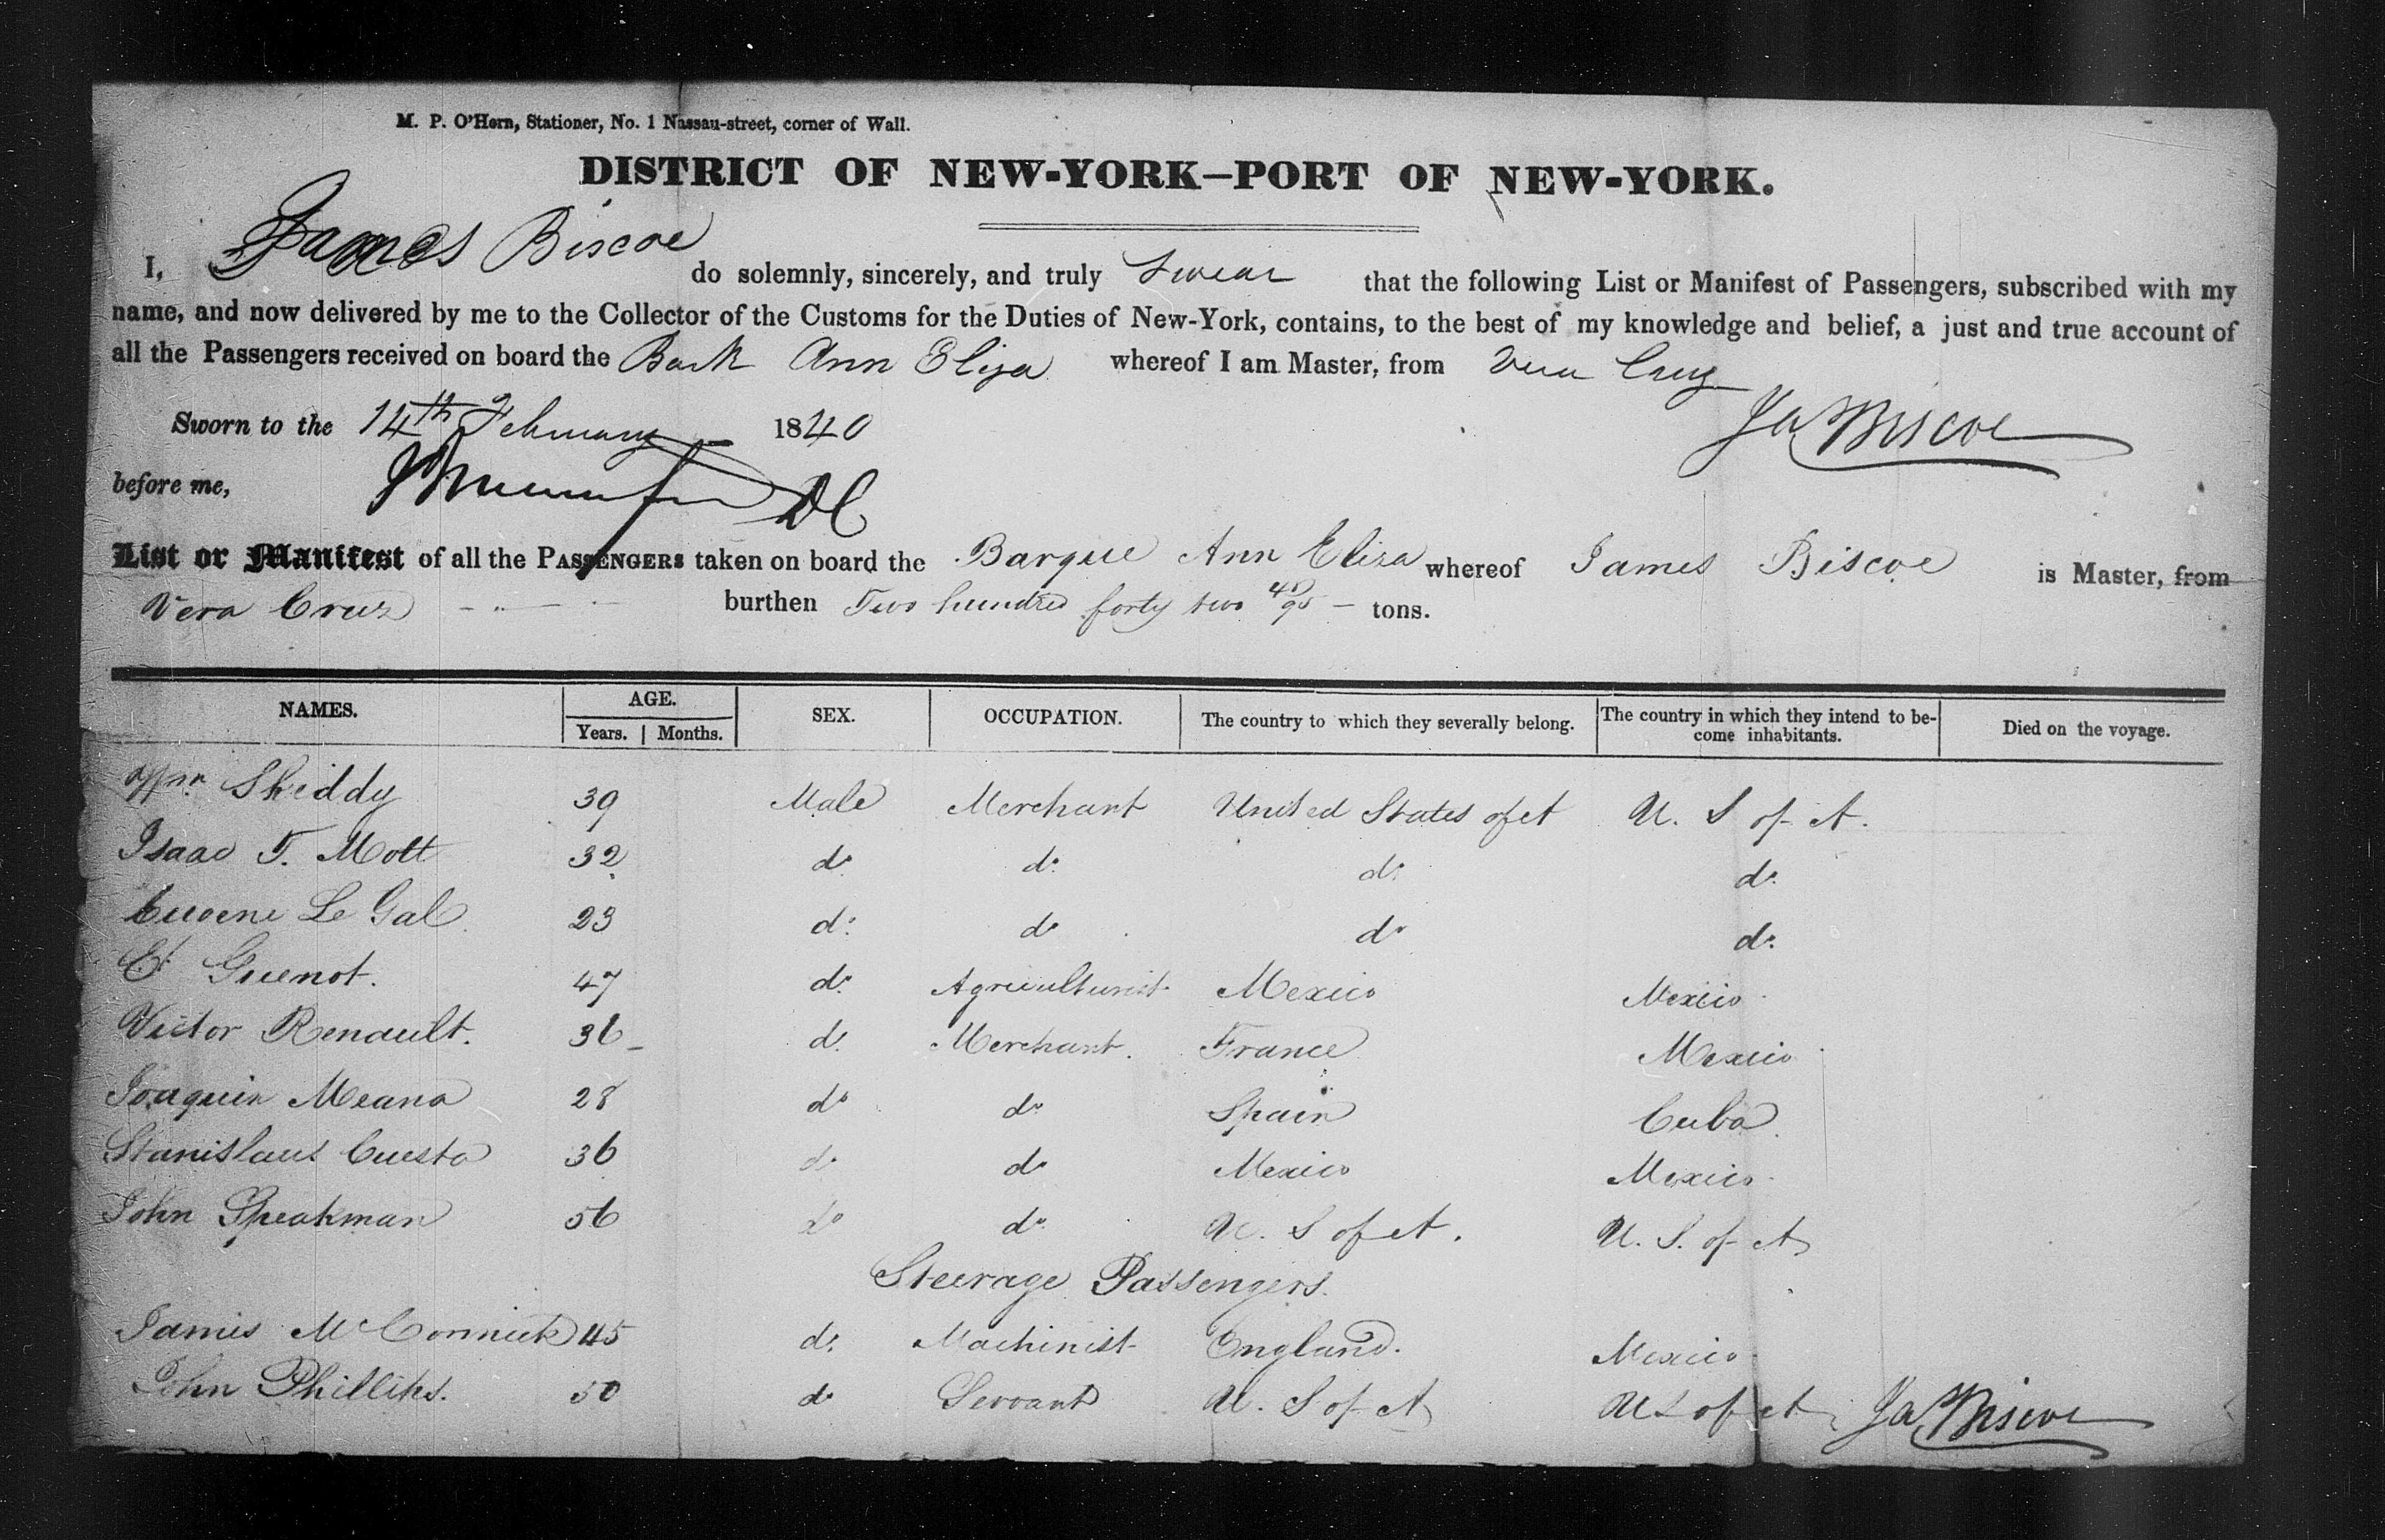 M. P. O'Hern, Stationer, No. 1 Nassau-street, corner of Wall.
DISTRICT OF NEW-YORK—PORT OF NEW-YORK.
I, James Biscoe do solemnly, sincerely, and truly Swear that the following List or Manifest of Passengers, subscribed with my
name, and now delivered by me to the Collector of the Customs for the Duties of New-York, contains, to the best of my knowledge and belief, a just and true account of
all the Passengers received on board the Bark Ann Eliza whereof I am Master, from Vera Cruz
Sworn to the 14th February 1840 Ja Biscoe
before me, DC
List or Manifest of all the PASSENGERS taken on board the Barque Ann Eliza whereof James Biscoe is Master, from
Vera Cruz burthen Two hundred forty two 40/95 tons.
NAMES. AGE. SEX. OCCUPATION. The country to which they severally belong. The country in which they intend to be- Died on the voyage.
Years. Months. come inhabitants.
Wm Shiddy 39 Male Merchant United States of A U. S of A.
Isaac T. Mott 32 do do do do
Eugene Le Gal 23 do do do do
Et Guenot. 47 do Agriculturist Mexico Mexico
Victor Renault. 36 do Merchant. France Mexico
Joaquin Meana 28 do do Spain Cuba.
Stanislaus Cuesta 36 do do Mexico Mexico
John Speakman 56 do do U. S of A. U. S. of A
Steerage Passengers.
James McCormick 45 do Machinist England. Mexico
John Phillips. 50 do Servant U. S of A U S of A Ja Biscoe